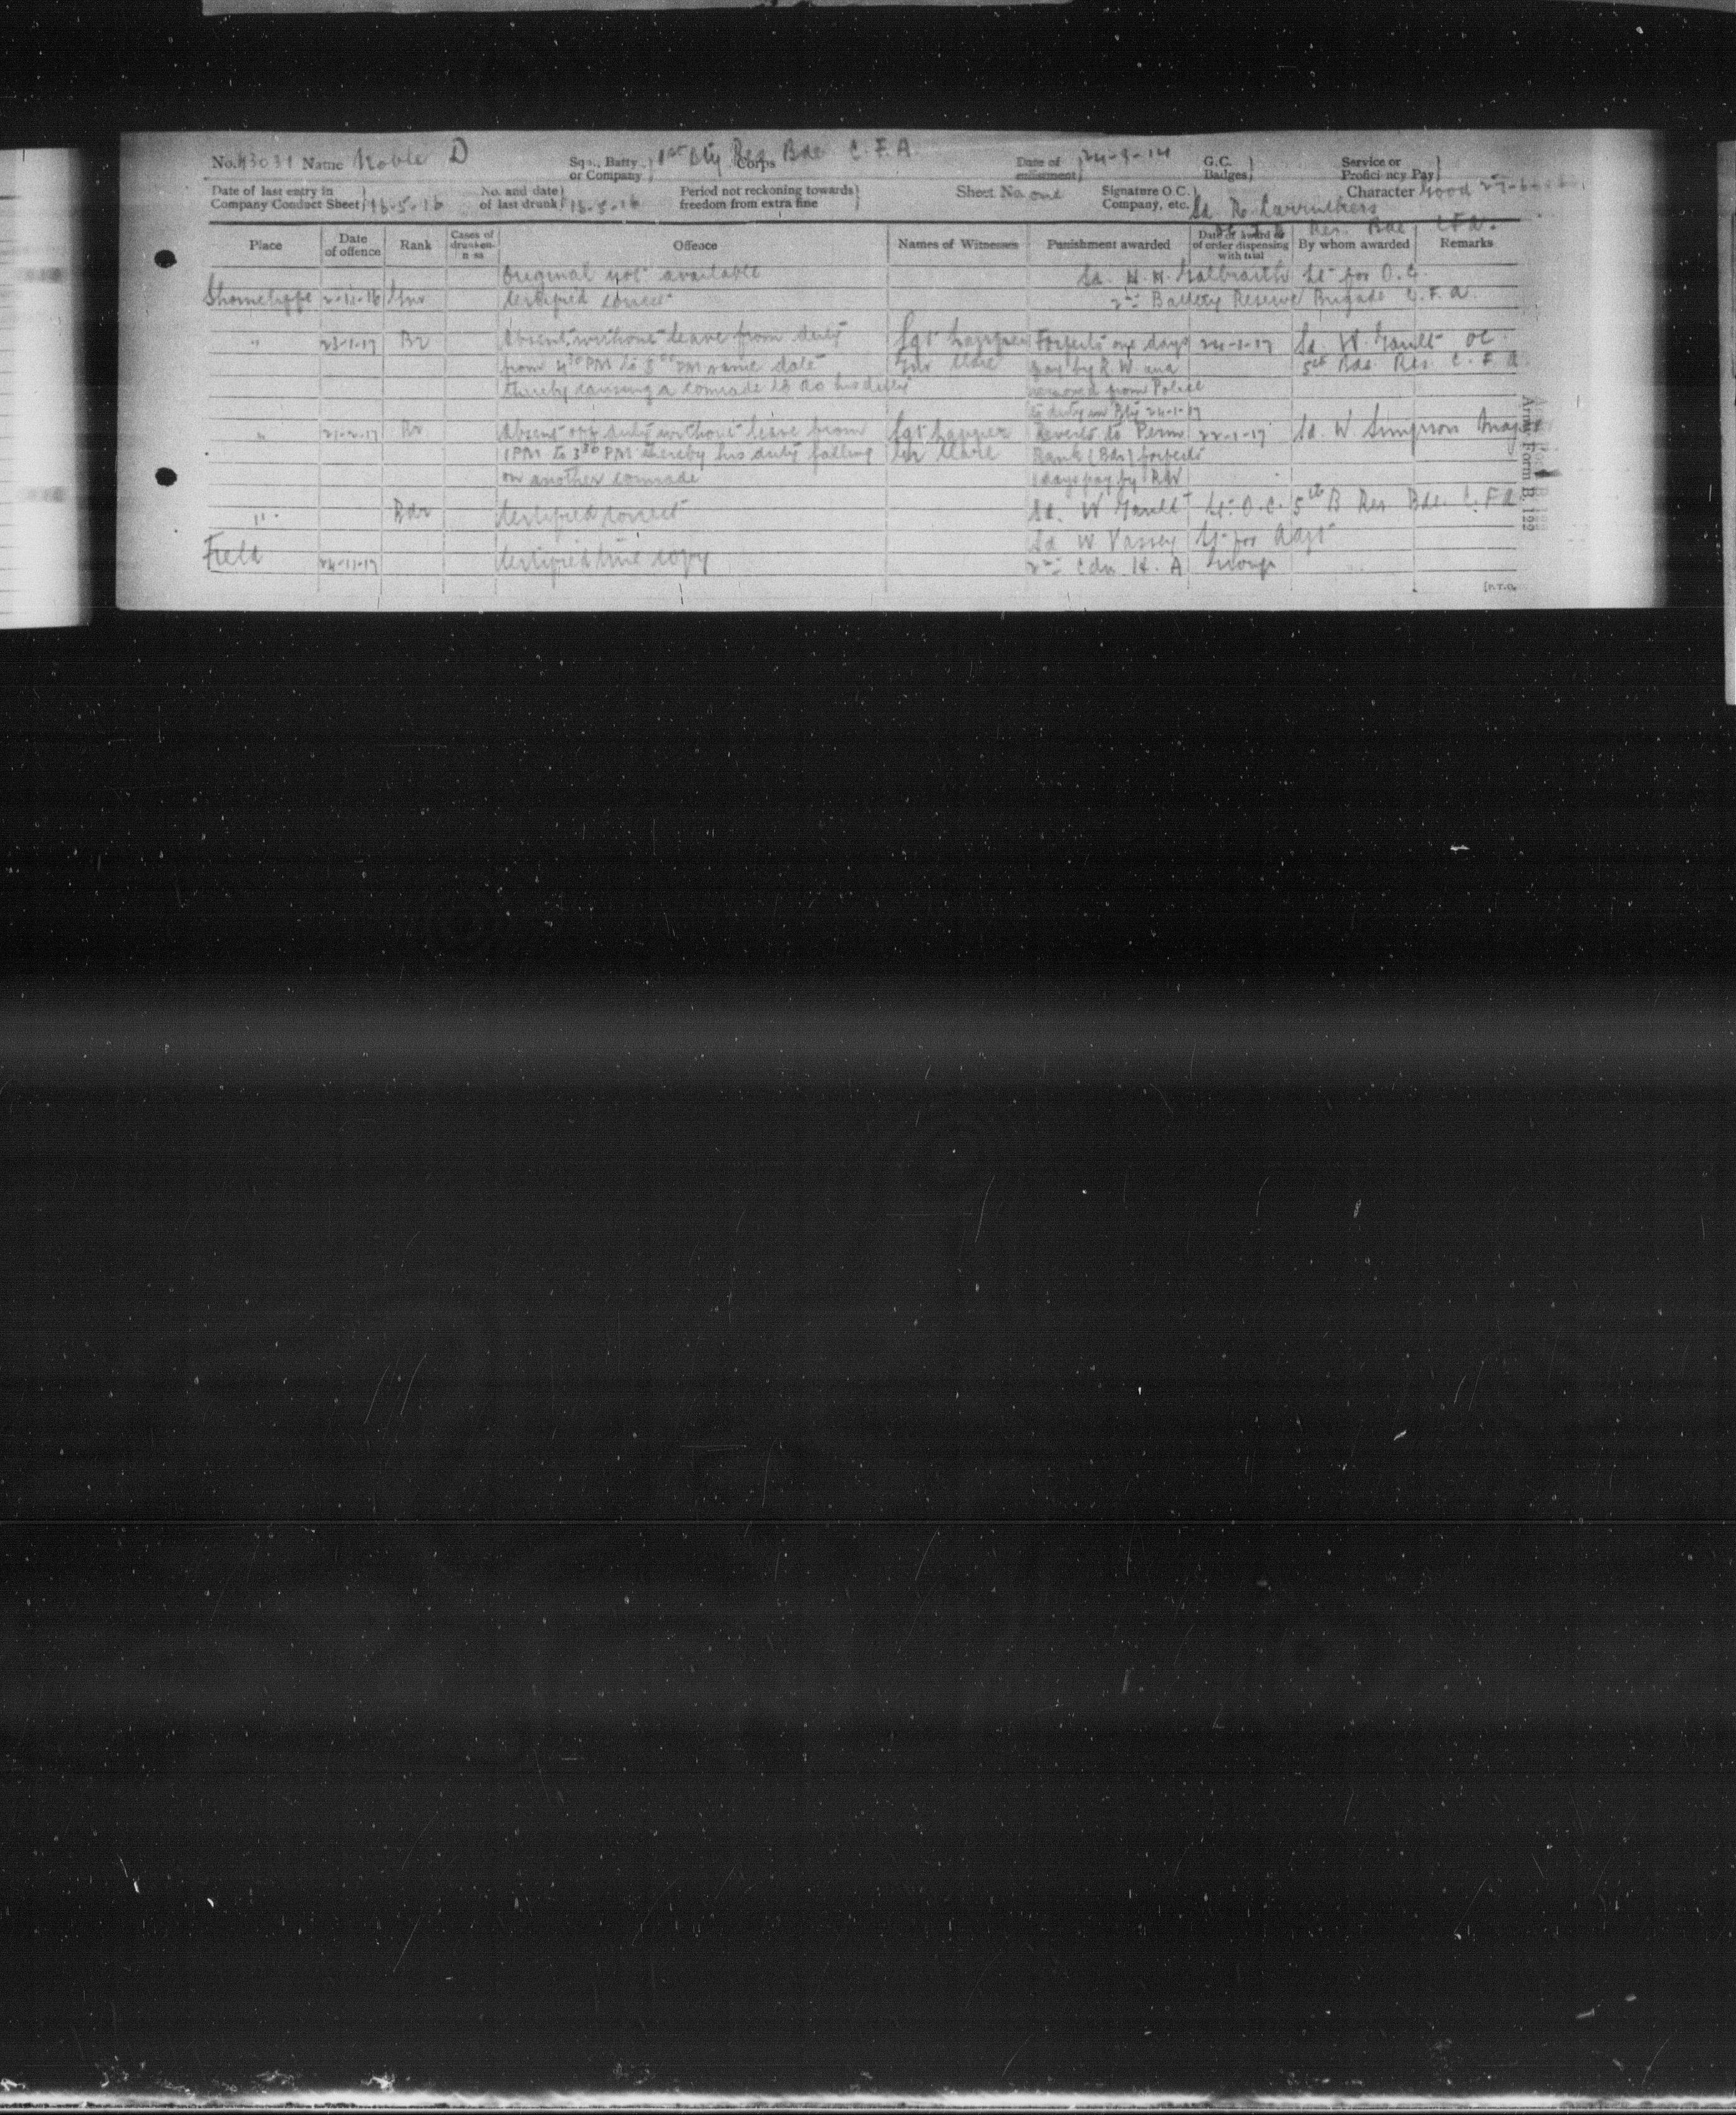 No. 43031 Name Noble D Sqn., Batty., or Company 1st Bty Res Bde C. F. A. Corps Date of enlistment 24-9-14 G.C. Badges Service or Proficiency Pay
Date of last entry in Company Conduct Sheet 16-5-16 No. and date of last drunk 16-5-16 Period not reckoning towards freedom from extra fine Sheet No. one Signature O.C. Company, etc. Sd R. Carruthers Character Good
Res. Bde C.F.A.
Place Date of offence Rank Cases of drunkenness Offence Names of Witnesses Punishment awarded Date of award or of order dispensing with trial By whom awarded Remarks
Original not available Sd. H. H. Galbraith Lt for O.C.
Shorncliffe 2-11-16 Gnr Certified correct 2nd Battery Reserve Brigade C.F.A.
" 23-1-17 Br Absent without leave from duty Sgt Forfeits one days 24-1-17 Sd. W. Gault OC
from 4 30 PM to 5 PM same date Gnr Clare pay by R.W and 5th Bde Res. C.F.A
thereby causing a comrade to do his duty removed from Police
to duty in Bty 24-1-17
" 21-2-17 Br Absent off duty without leave from Sgt Reverts to Perm 22-1-17 Sd. W Simpson Major
1 PM to 3 30 PM thereby his duty falling Clare Rank (Bdr) forfeits
on another comrade 1 days pay by RW
" Bdr Certified correct Sd. W Gault Lt. O.C. 5th B Res Bde. C.F.A
Sd W Vassey Lt for Adjt
Field 24-11-17 Certified true copy 2nd Cdn H. A Group
[P.T.O.
Army Form B. 122